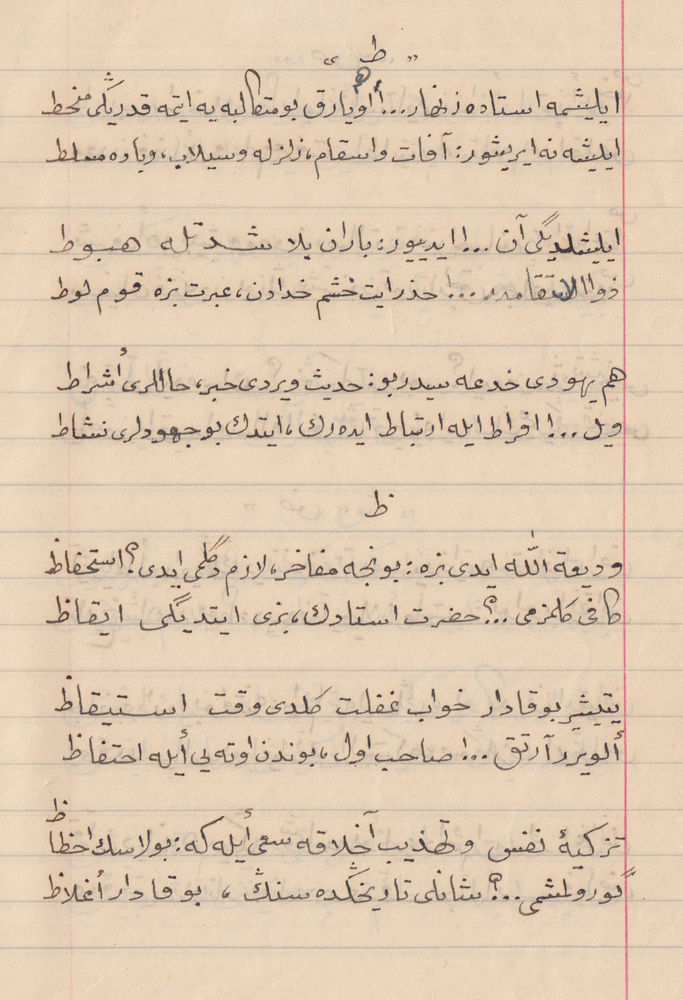 „ ط „
ایلیشمه استاده زنهار...! اویارق بو متکالبه یه ایتمه قدریڭی منحط
ایلیشه نه ایریشور: آفات واسقام، زلزله وسیلاب، وباده مسلط
ایلیشلدیگی آن...! ایدییور: باران بلا شدتله هبوط
ذوالانتقامدر...! حذر ایت خشم خدادن، عبرت بزه قوم لوط
هم یهودی خدعه سیدر بو: حدیث ویردی خبر، حاللری أشراط
ویل...! افراط ایله ارتباط ایده رك، ایتدك بو جهودلری نشاط
ظ
ودیعة اللّٰه ایدی بزه: بونجه مفاخر، لازم دگلمی ایدی؟ استحفاظ
كافی گلمزمی..؟ حضرت استادك، بزی ایتدیگی ایقاظ
یتیشیر بوقادار خواب غفلت گلدی وقت استیقاظ
ألویرر آرتق...! صاحب اول، بوندن اوته یی أیله احتفاظ
تزكیهٔ نفس وتهذیب آخلاقه سعی أیله كه: بولاسك احظاظ
گورولمشمی...؟ شانلی تاریخڭده سنڭ، بوقادار أغلاظ